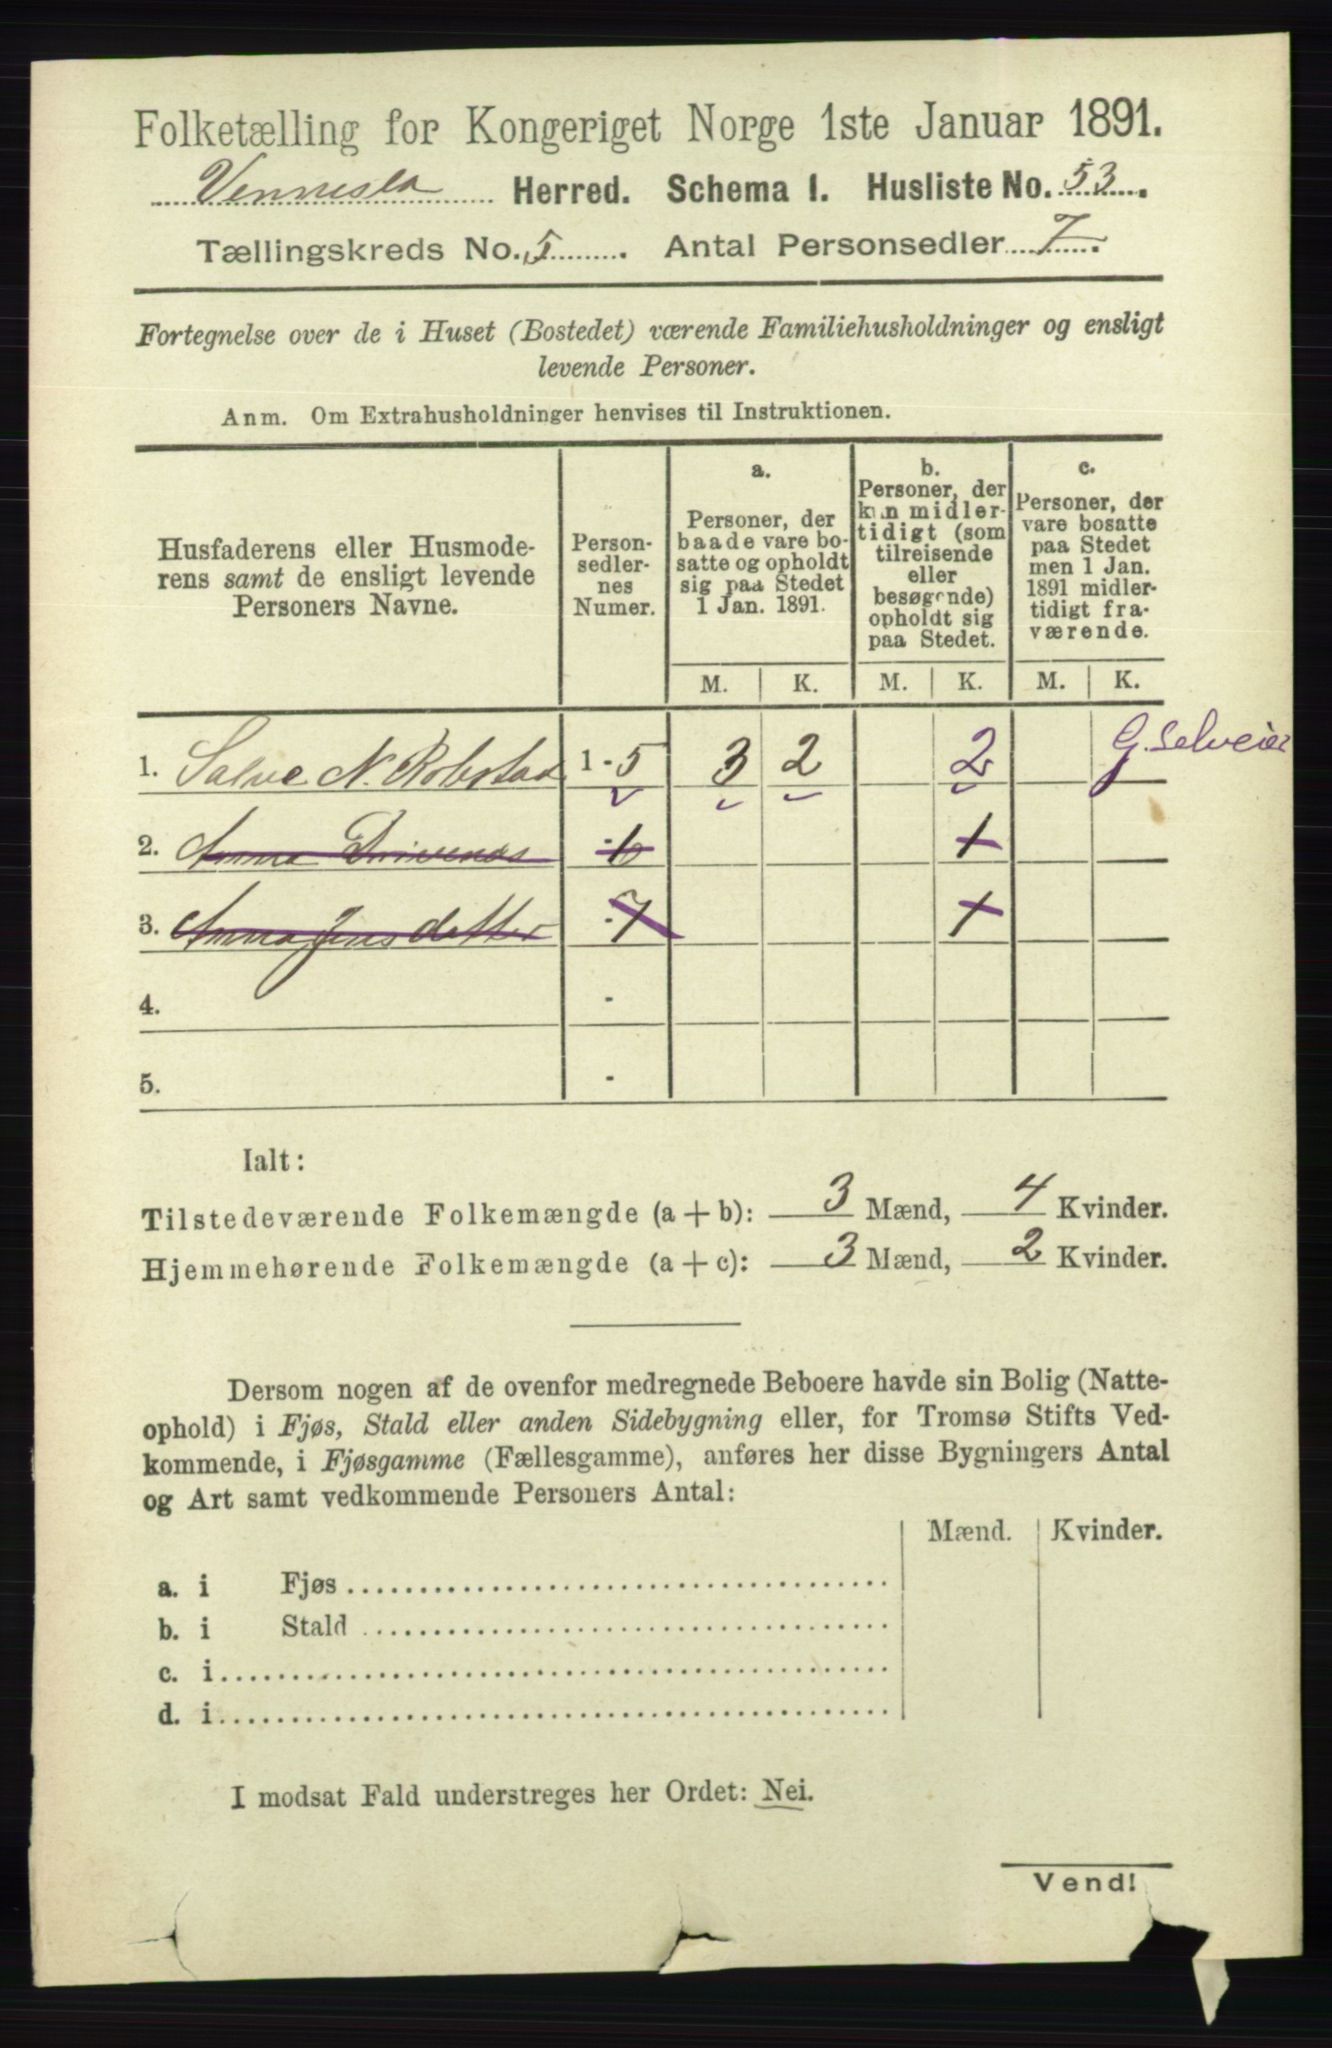 Folketælling for Kongeriget Norge 1ste Januar 1891.
Vennesla Herred. Schema I. Husliste No. 53.
Tællingskreds No. 5. Antal Personsedler 7.
Fortegnelse over de i Huset (Bostedet) værende Familiehusholdninger og ensligt
levende Personer.
Anm. Om Extrahusholdninger henvises til Instruktionen.
Husfaderens eller Husmode-
rens samt de ensligt levende
Personers Navne.
Person-
sedler-
nes
Numer.
a.
Personer, der
baade vare bo-
satte og opholdt
sig paa Stedet
1 Jan. 1891.
b.
Personer, der
kun midler-
tidigt (som
tilreisende
eller
besøgende)
opholdt sig
paa Stedet.
c.
Personer, der
vare bosatte
paa Stedet
men 1 Jan.
1891 midler-
tidigt fra-
værende.
M. K. M. K. M. K.
1. Salve N. Robstad 1 - 5 3 2 2 G. Selveier
2. Anna Drivenes - 6 1
3. Anna Jensdatter - 7 1
4. -
5. -
Ialt:
Tilstedeværende Folkemængde (a + b): 3 Mænd, 4 Kvinder.
Hjemmehørende Folkemængde (a + c): 3 Mænd, 2 Kvinder.
Dersom nogen af de ovenfor medregnede Beboere havde sin Bolig (Natte-
ophold) i Fjøs, Stald eller anden Sidebygning eller, for Tromsø Stifts Ved-
kommende, i Fjøsgamme (Fællesgamme), anføres her disse Bygningers Antal
og Art samt vedkommende Personers Antal:
Mænd. Kvinder.
a. i Fjøs
b. i Stald
c. i
d. i
I modsat Fald understreges her Ordet: Nei.
Vend!